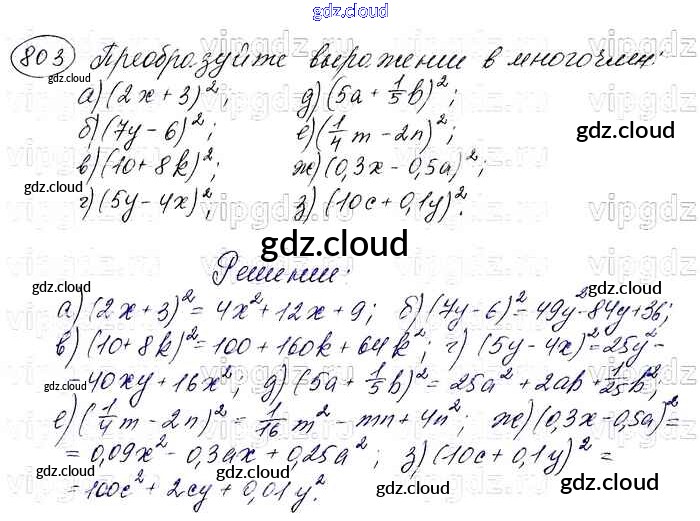 gdz.cloud
803 Преобразуйте выражение в многочлен:
а) (2x + 3)²; д) (5a + 1/5 b)²;
б) (7y - 6)²; е) (1/4 m - 2n)²;
в) (10 + 8k)²; ж) (0,3x - 0,5a)²;
г) (5y - 4x)²; з) (10c + 0,1y)².
gdz.cloud
gdz.cloud
gdz.cloud
gdz.cloud
gdz.cloud
gdz.cloud
Решение:
а) (2x + 3)² = 4x² + 12x + 9; б) (7y - 6)² = 49y² - 84y + 36;
в) (10 + 8k)² = 100 + 160k + 64k²; г) (5y - 4x)² = 25y² -
- 40xy + 16x²; д) (5a + 1/5 b)² = 25a² + 2ab + 1/25 b²;
е) (1/4 m - 2n)² = 1/16 m² - mn + 4n²; ж) (0,3x - 0,5a)² =
= 0,09x² - 0,3ax + 0,25a²; з) (10c + 0,1y)² =
= 100c² + 2cy + 0,01y².
gdz.cloud
gdz.cloud
gdz.cloud
gdz.cloud
gdz.cloud